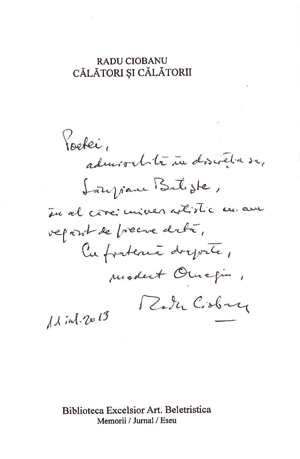 RADU CIOBANU
CĂLĂTORI ȘI CĂLĂTORII
Poetei,
admirabilă în discreția sa,
Sânziana Batiște,
în al cărei univers artistic m-am
regăsit de fiecare dată,
Cu fraternă dragoste,
modest Omagiu,
Radu Ciobanu
11 iul. 2013
Biblioteca Excelsior Art. Beletristica
Memorii / Jurnal / Eseu